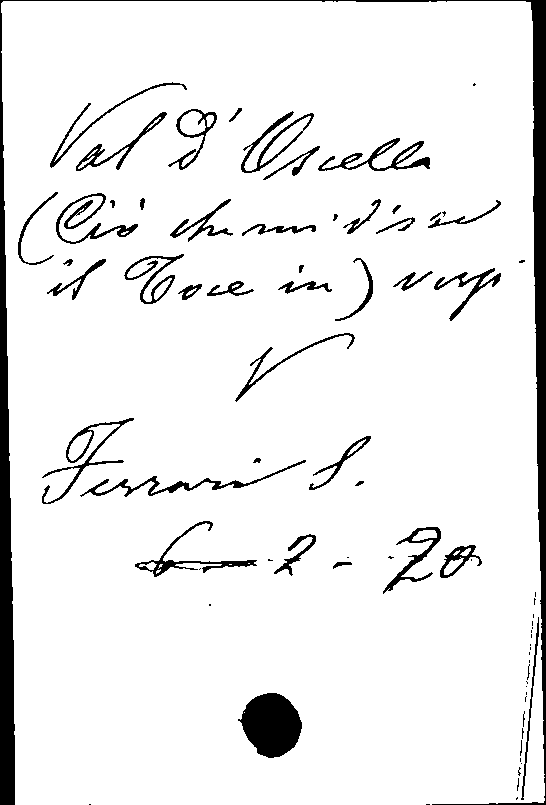 Val d'Oscella
(Ciò che mi disse
il Toce in) versi
V
Ferrari S.
6-2-20